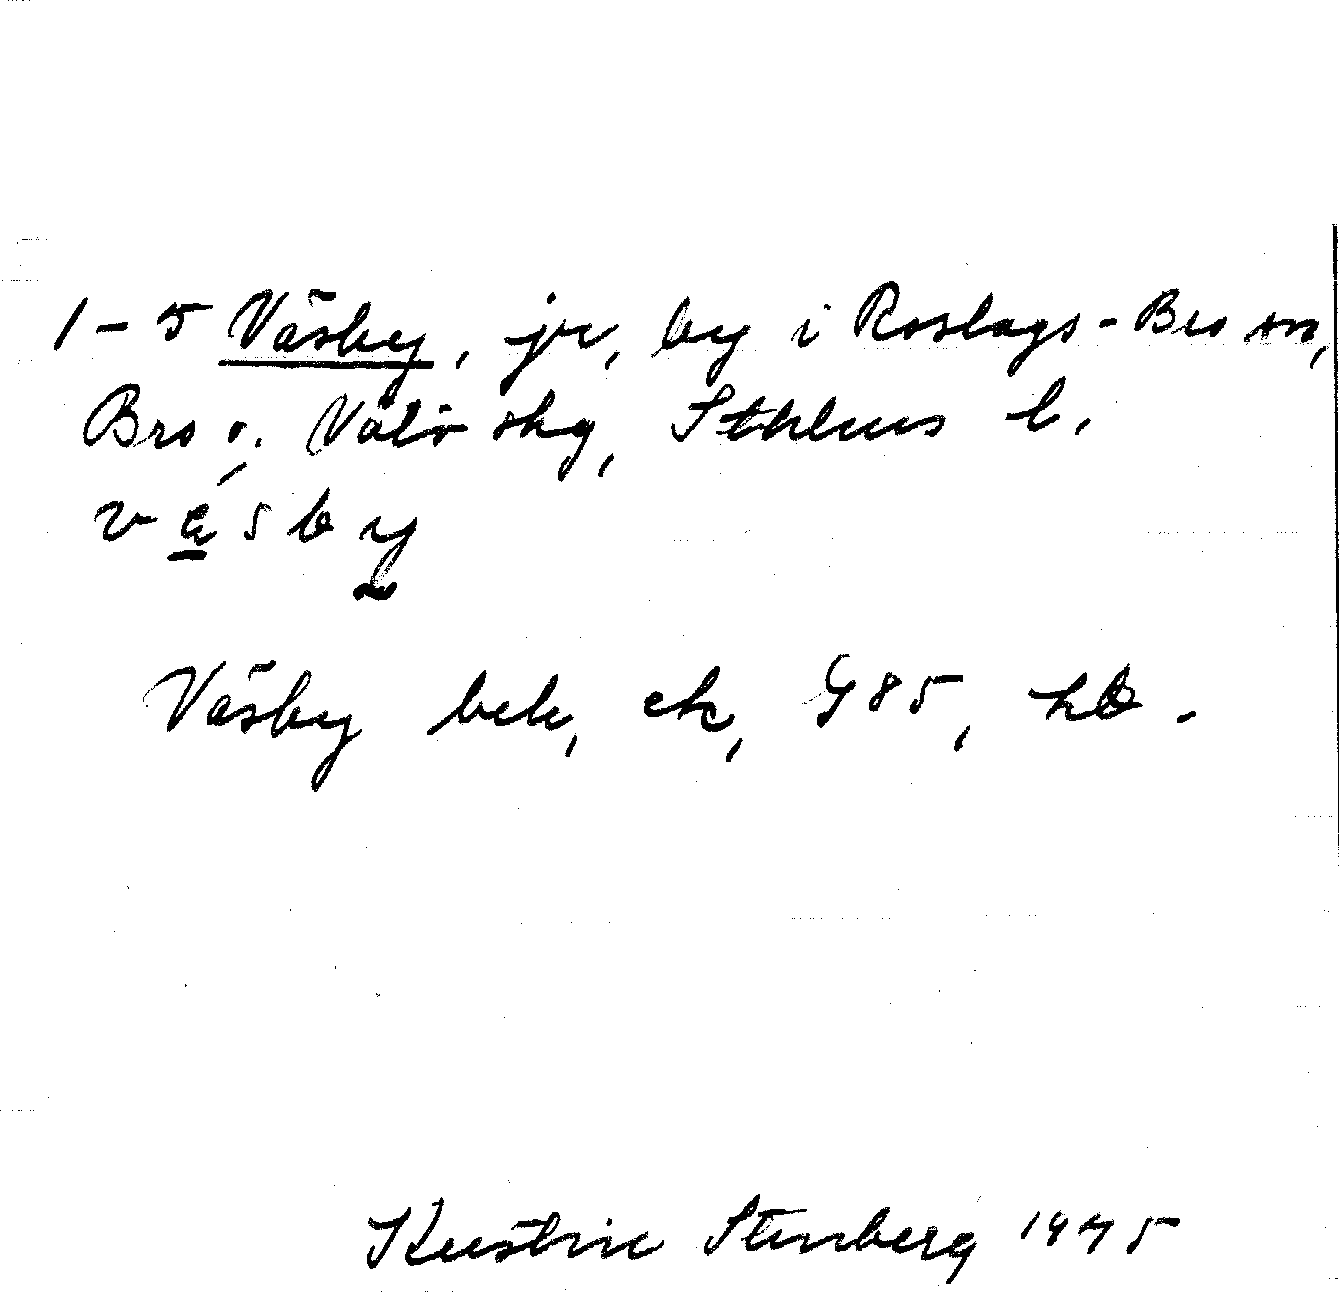 1-5 Väsby, jr, by i Roslags-Bro sn,
Bro o. Vätö skg, Sthlms l.
väsby
Väsby bek, ek, G85, hb.
Kerstin Stenberg 1975